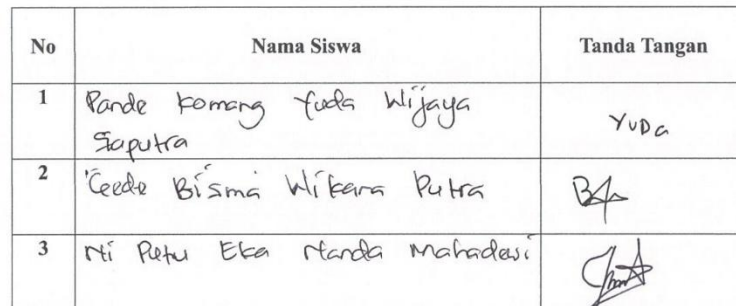 No Nama Siswa Tanda Tangan
1 Pande Komang Yuda Wijaya
Saputra YUDa
2 Gede Bisma Wikara Putra
3 Ni Putu Eka Nanda Mahadewi